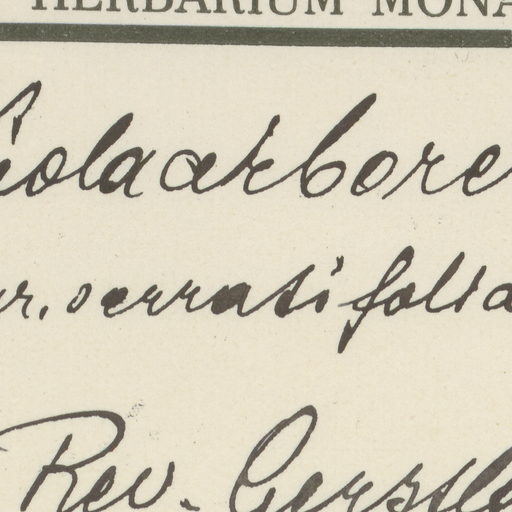 HERBARIUM MONA
iola arbore
r. serratifolia
Rev. Gerstle